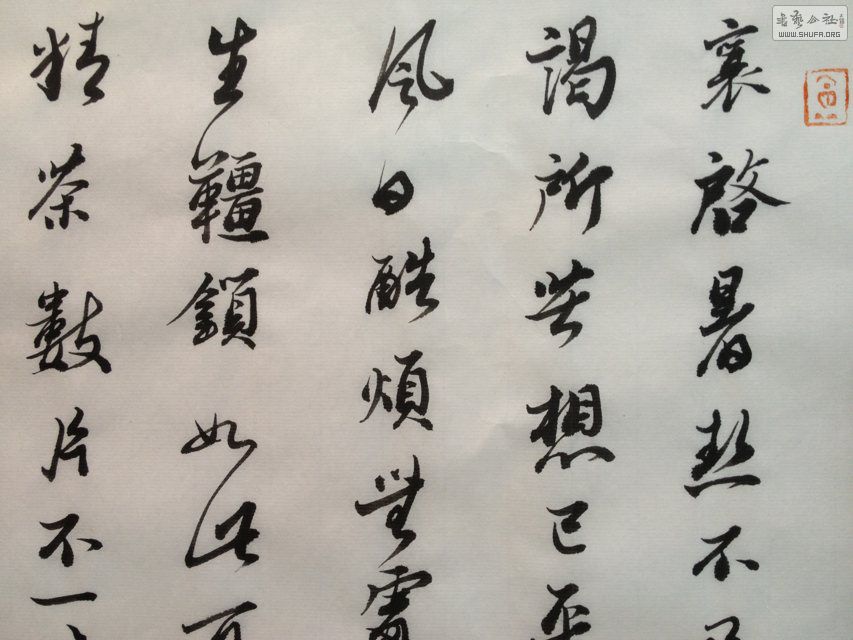 書藝公社
WWW.SHUFA.ORG
襄啓暑熱不
謁所苦想已平
風日酷煩無
生韁鎖如此可
精茶數片不一